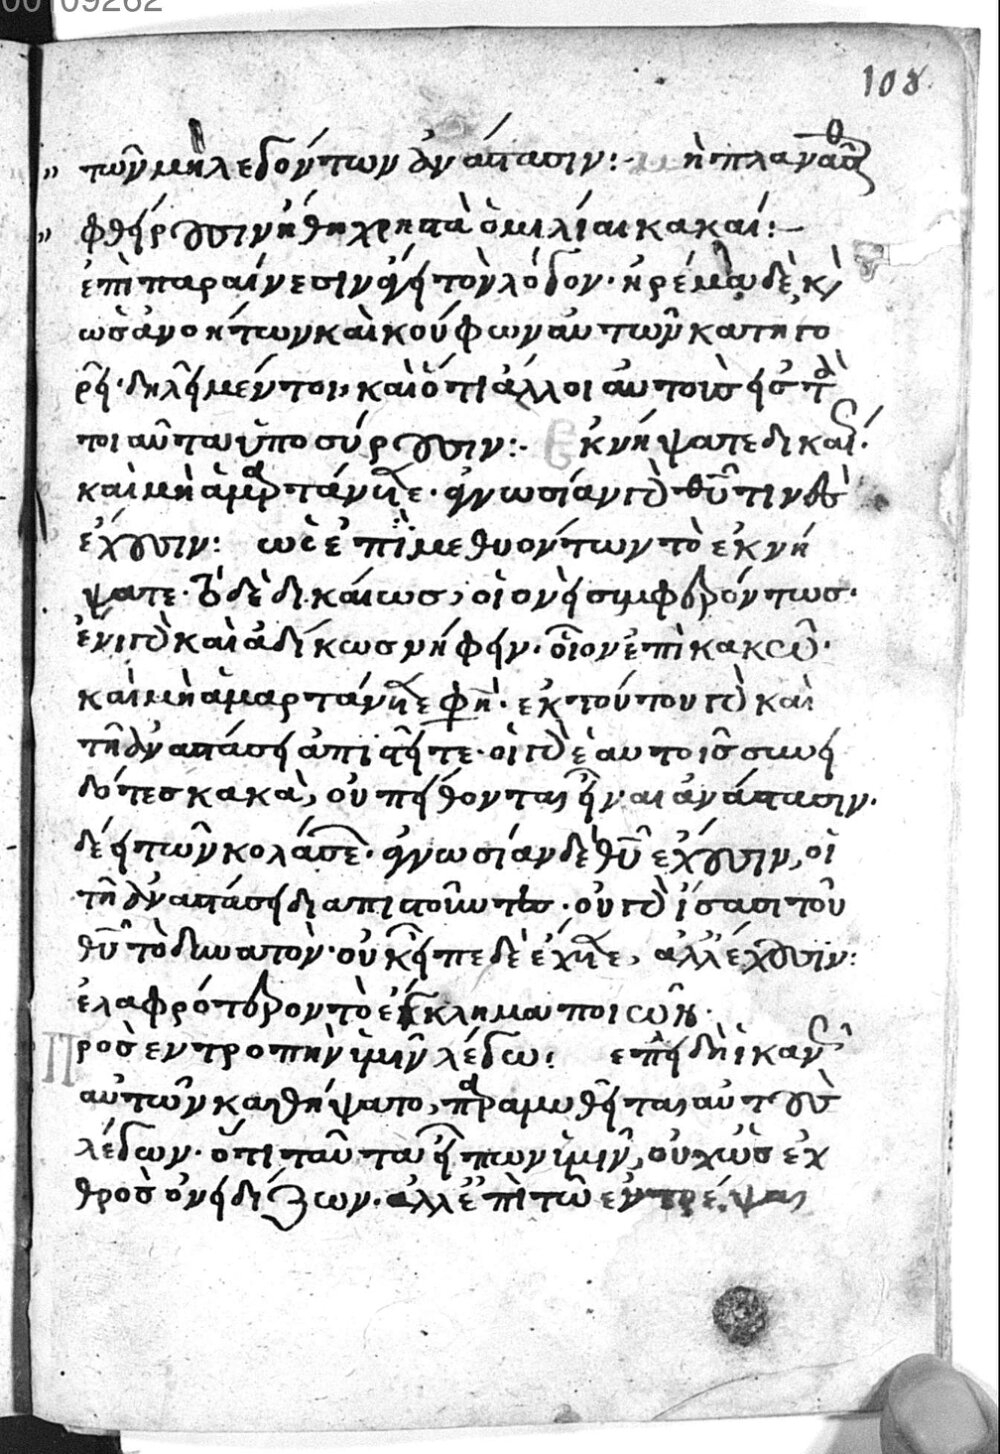 00109262
108
τῶν μὴ λεγόντων ἀνάστασιν:· μὴ πλανᾶσθ
φθείρουσιν ἤθη χρηστὰ ὁμιλίαι κακαί:–
ἐπὶ παραίνεσιν ἄγει τὸν λόγον· ἠρέμα δὲ κ
ὡς ἀνοήτων καὶ κούφων αὐτῶν κατηγο
ρεῖ· δηλεῖ μέντοι, καὶ ὅτι ἄλλοι αὐτοῖς εἰσ
τοιαῦτα ὑποσύρουσιν:· Ἐκνήψατε δικαί·
καὶ μὴ ἁμαρτάνητε· ἀγνωσίαν γὰρ θῦ τινὲς
ἔχουσιν: ὡς ἐπὶ μεθυόντων τὸ ἐκνή
ψατε· τὸ δὲ δικαίως, οἱονεὶ συμφερόντως·
ἔνι γὰρ καὶ ἀδίκως νήφειν· οἷον ἐπὶ κακῶ·
καὶ μὴ ἁμαρτάνητε φησὶ· ἐκ τούτου γὰρ καὶ
τῇ ἀναστάσει ἀπιστεῖτε· οἱ γὰρ ἑαυτοῖς συνει
δότες κακὰ, οὐ πείθονται εἶναι ἀνάστασιν·
δέει τῶν κολάσεων· ἀγνωσίαν δὲ θῦ ἔχουσιν, οἱ
τῇ ἀναστάσει διαπιστοῦντες· οὐ γὰρ ἴσασι τοῦ
θῦ τὸ δυνατὸν· οὐκ εἶπε δὲ ἔχητε, ἀλλ ἔχουσιν:
ἐλαφρότερον τὸ ἔγκλημα ποιῶν·
Πρὸς ἐντροπὴν ὑμῖν λέγω: ἐπειδὴ ἱκανῶς
αὐτῶν καθήψατο, παραμυθεῖται αὐτοὺς
λέγων· ὅτι ταῦτα εἶπον ὑμῖν, οὐχ ὡς ἐχ
θρὸς ὀνειδίζων· ἀλλ ἐπὶ τῶ ἐντρέψαι